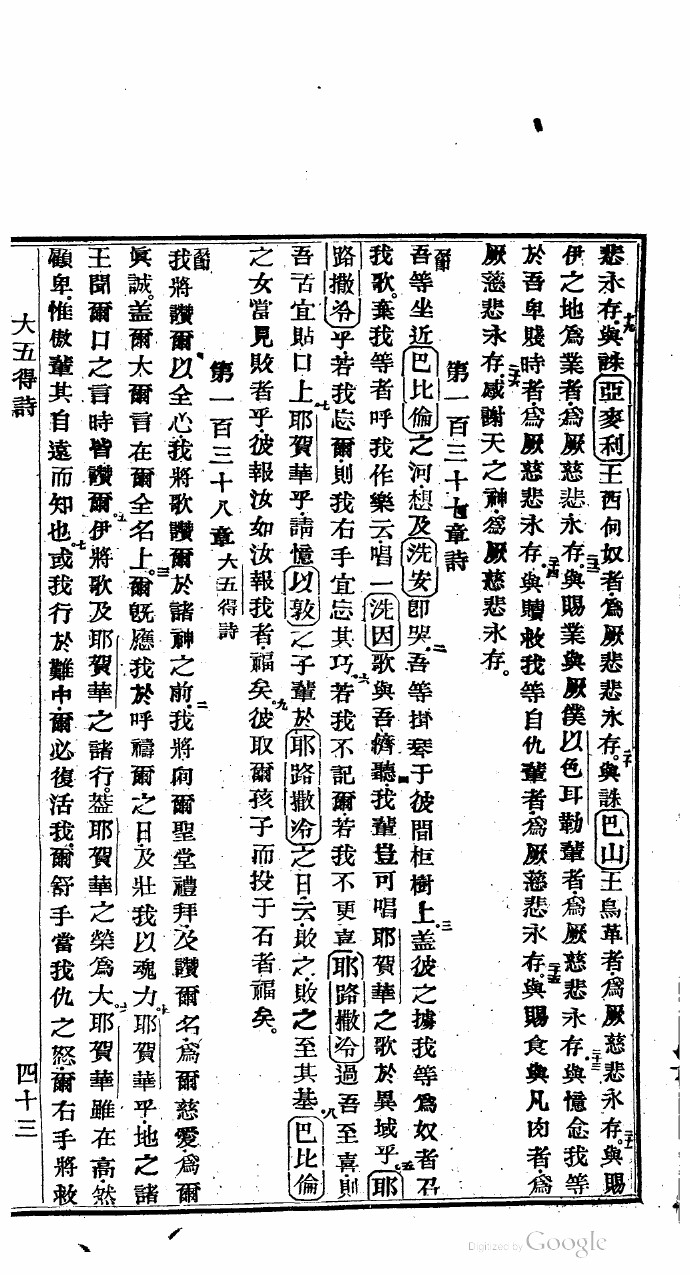 悲永存。與誅亞麥利王西何奴者為厥悲悲永存。二十與誅巴山王烏革者為厥慈悲永存。二一與賜
伊之地為業者為厥慈悲永存。二二與賜業與厥僕以色耳勒輩者為厥慈悲永存。二三與憶念我等
於吾卑賤時者為厥慈悲永存。二四與贖救我等自仇輩者為厥慈悲永存。二五與賜食與凡肉者為
厥慈悲永存。二六感謝天之神為厥慈悲永存。
第一百三十七章詩
吾等坐近巴比倫之河想及洗安即哭。二吾等掛琴于彼間柜樹上。三盖彼之擄我等為奴者召
我歌。棄我等者呼我作樂云唱一洗因歌與吾儕聽。四我輩豈可唱耶賀華之歌於異域乎。五耶
路撒冷乎若我忘爾則我右手宜忘其巧。六若我不記爾若我不更喜耶路撒冷過吾至喜則
吾舌宜貼口上。七耶賀華乎請憶以敦之子輩於耶路撒冷之日云敗之敗之至其基。八巴比倫
之女當見敗者乎彼報汝如汝報我者福矣。九彼取爾孩子而投于石者福矣。
第一百三十八章 大五得詩
我將讚爾以全心我將歌讚爾於諸神之前。二我將向爾聖堂禮拜及讚爾名為爾慈愛為爾
眞誠。盖爾大爾言在爾全名上。三爾既應我於呼禱爾之日及壯我以魂力。四耶賀華乎地之諸
王聞爾口之言時皆讚爾。五伊將歌及耶賀華之諸行。蓋耶賀華之榮為大。六耶賀華雖在高然
顧卑惟傲輩其自遠而知也。七或我行於難中爾必復活我。爾舒手當我仇之怒爾右手將救
大五得詩
四十三
Digitized by Google